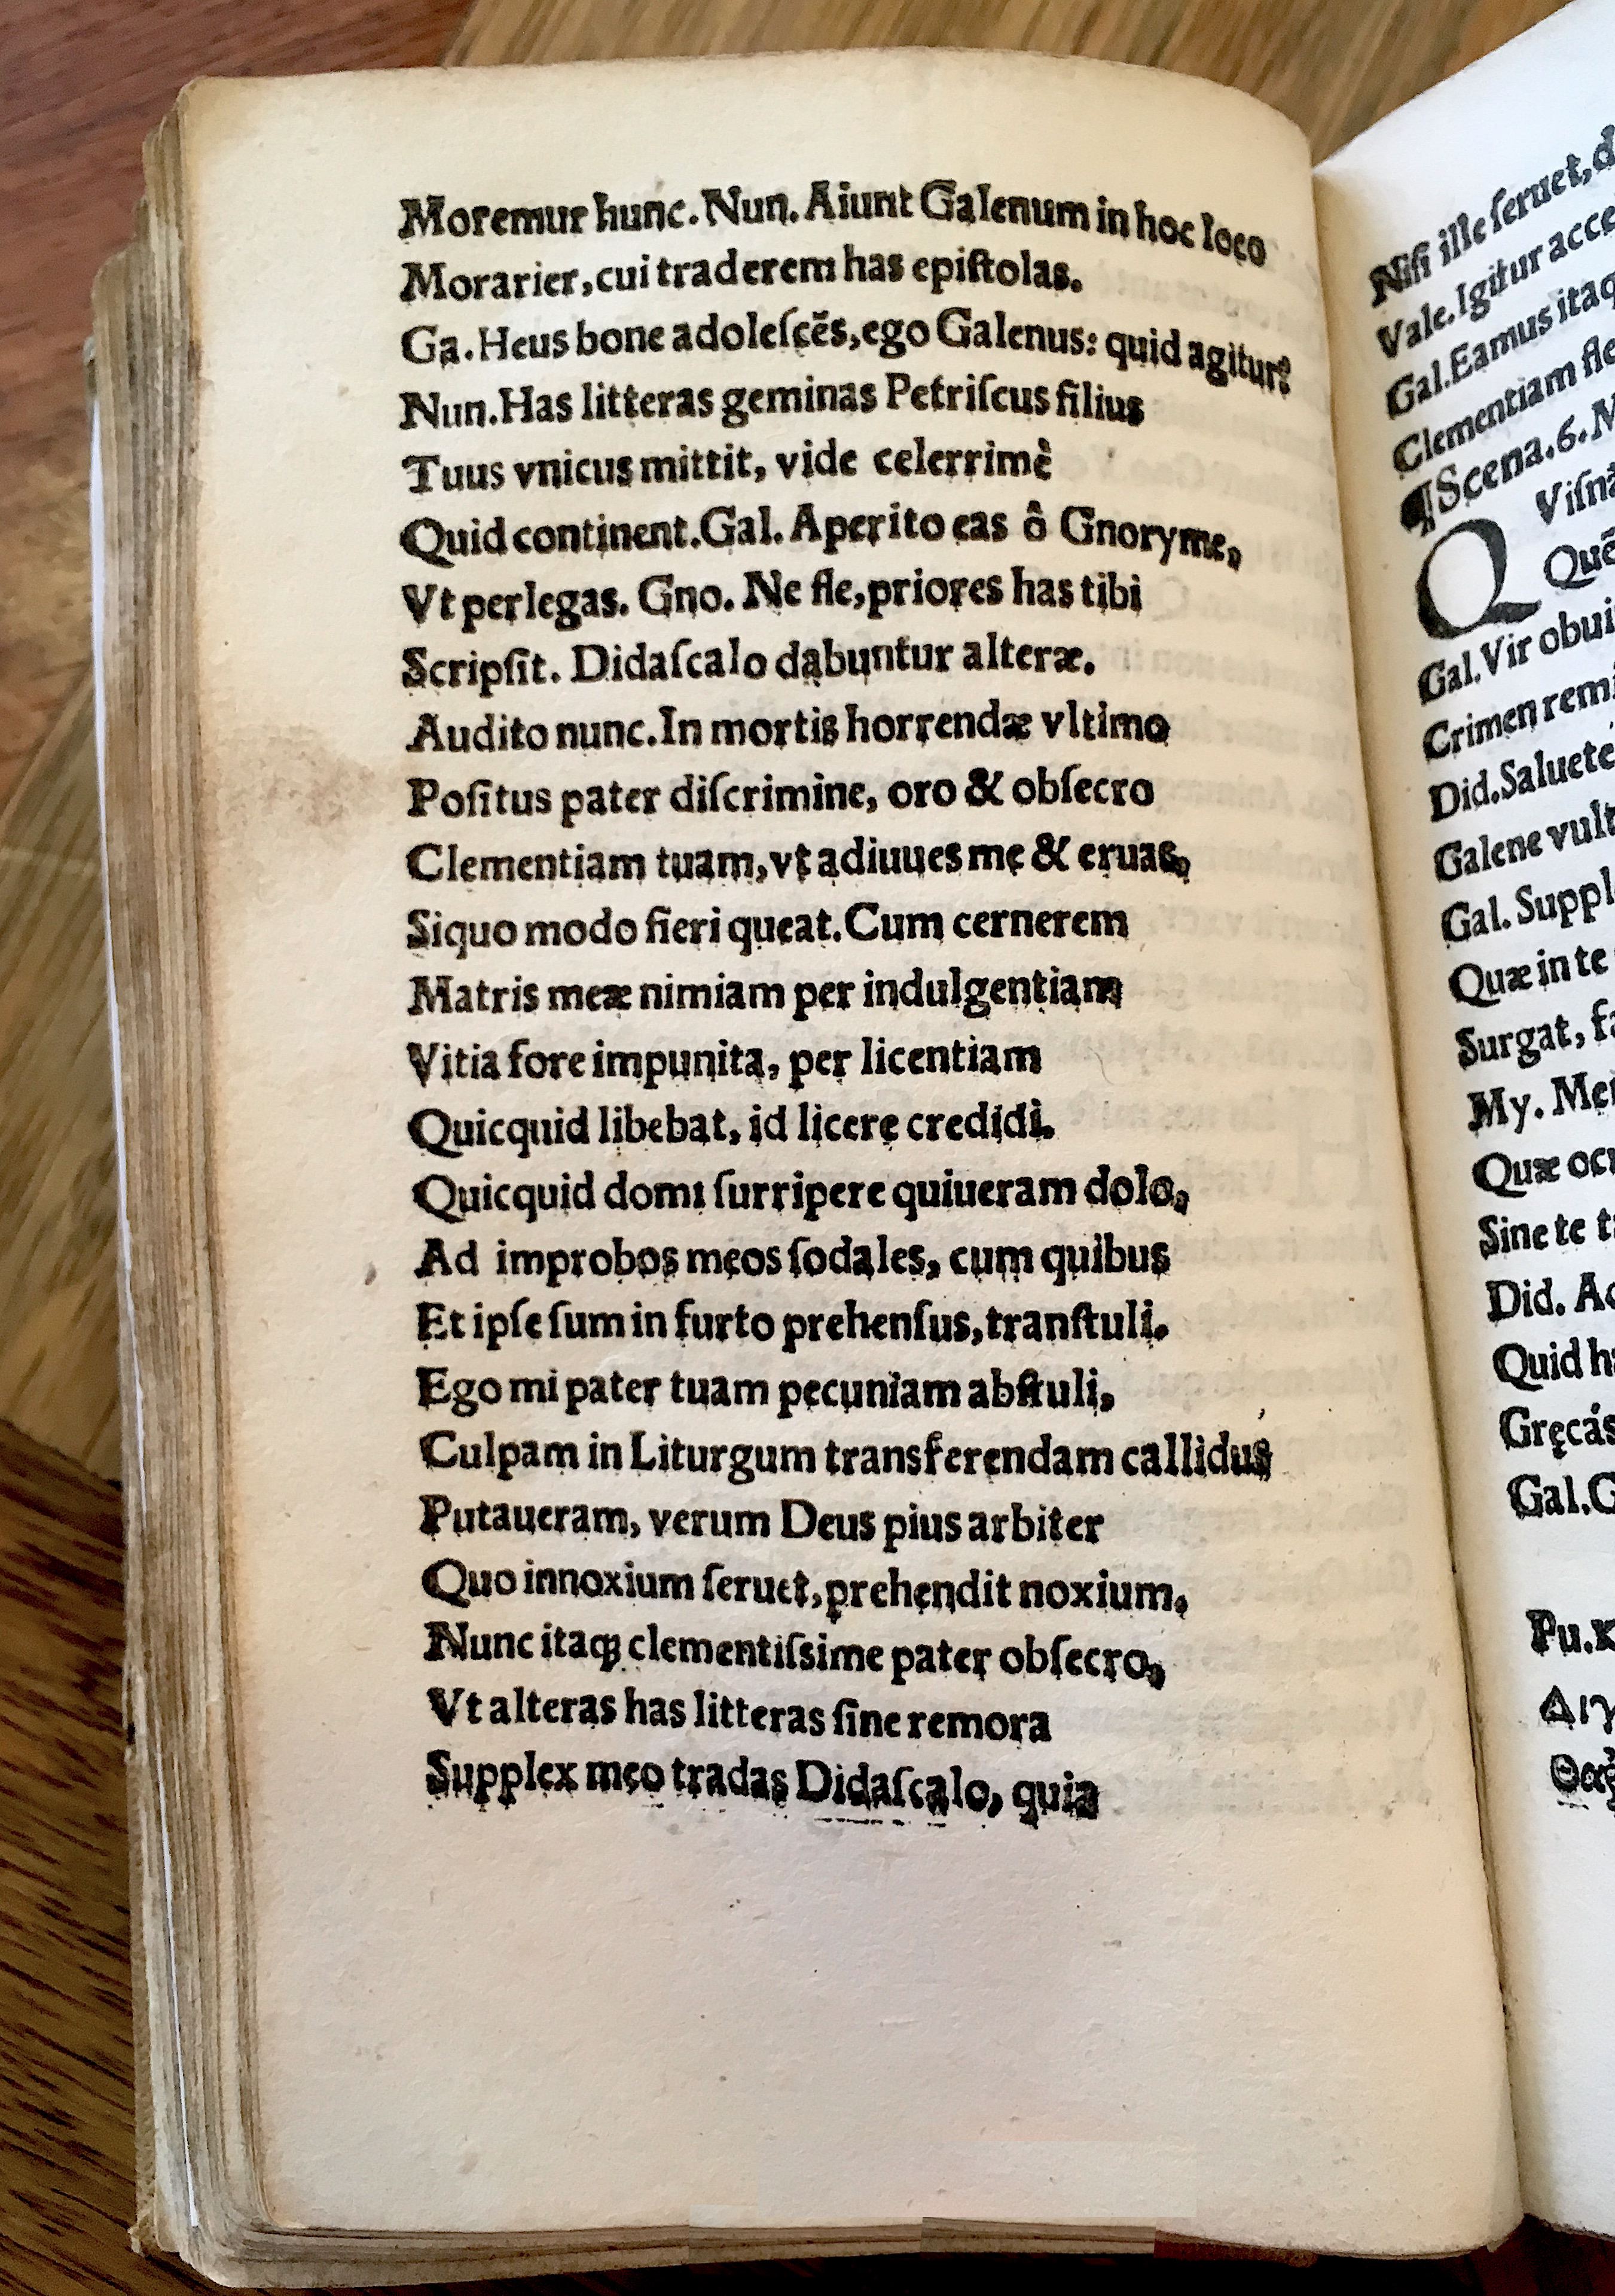 Moremur hunc. Nun. Aiunt Galenum in hoc loco
Morarier, cui traderem has epiſtolas.
Ga. Heus bone adoleſcēs, ego Galenus: quid agitur?
Nun. Has litteras geminas Petriſcus filius
Tuus vnicus mittit, vide celerrimè
Quid continent. Gal. Aperito eas ô Gnoryme,
Vt perlegas. Gno. Ne fle, priores has tibi
Scripſit. Didaſcalo dabuntur alteræ.
Audito nunc. In mortis horrendæ vltimo
Poſitus pater diſcrimine, oro & obſecro
Clementiam tuam, vt adiuues me & eruas,
Siquo modo fieri queat. Cum cernerem
Matris meæ nimiam per indulgentiam
Vitia fore impunita, per licentiam
Quicquid libebat, id licere credidi.
Quicquid domi ſurripere quiueram dolo,
Ad improbos meos ſodales, cum quibus
Et ipſe ſum in furto prehenſus, tranſtuli.
Ego mi pater tuam pecuniam abſtuli,
Culpam in Liturgum transferendam callidus
Putaueram, verum Deus pius arbiter
Quo innoxium ſeruet, prehendit noxium,
Nunc itaꝗ clementiſsime pater obſecro,
Vt alteras has litteras ſine remora
Supplex meo tradas Didaſcalo, quia
Niſi ille ſeruet,
Vale. Igitur
Gal. Eamus
Clementiam
¶Scena. 6.
Q
Gal. Vir
Crimen
Did. Saluete
Galene
Gal.
Quæ in te
Surgat,
My.
Quæ
Sine te
Did.
Quid
Gręcás
Gal.
Pu.